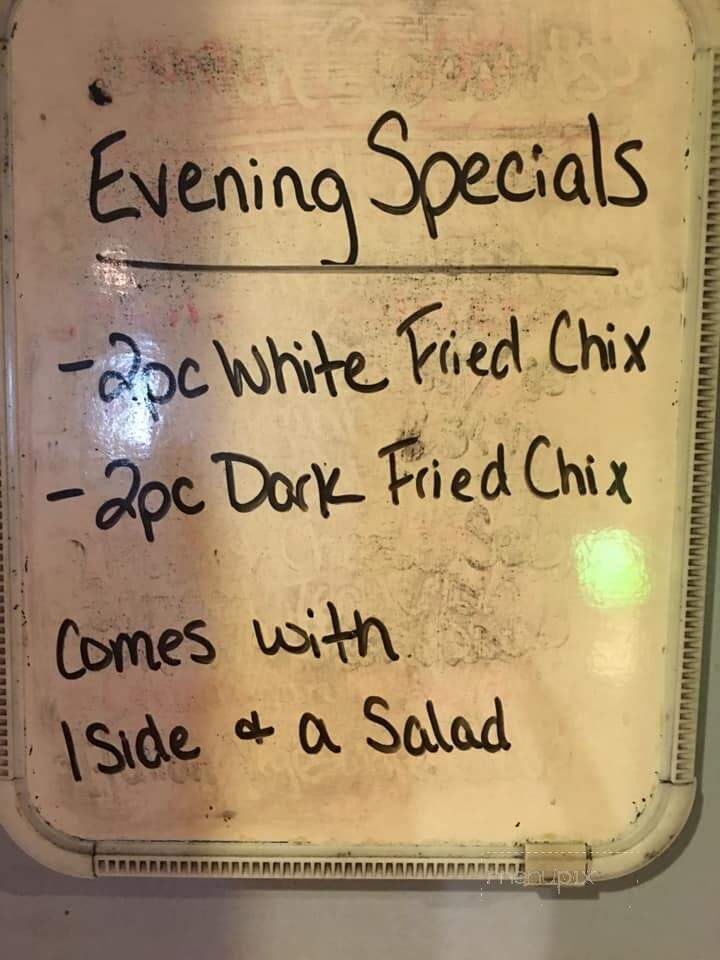 Evening Specials
- 2pc White Fried Chix
- 2pc Dark Fried Chix
Comes with
1 Side & a Salad
menupix